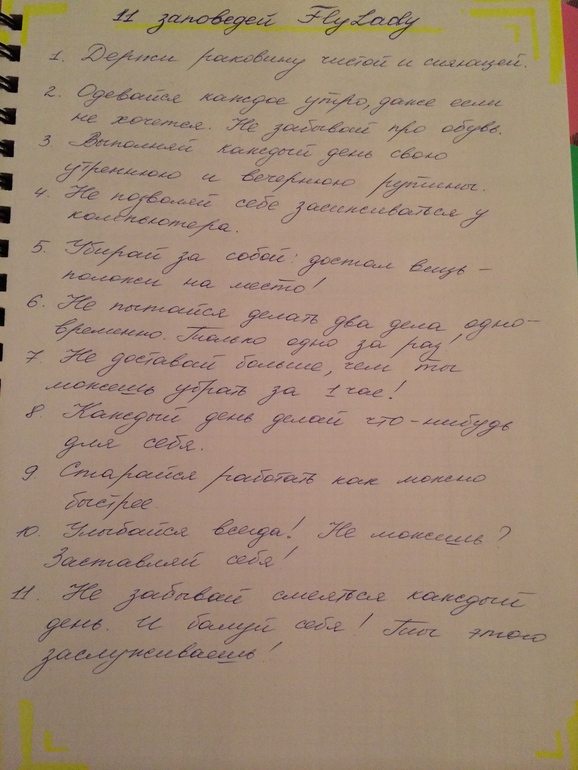 11 заповедей FlyLady
1. Держи раковину чистой и сияющей.
2. Одевайся каждое утро, даже если
не хочется. Не забывай про обувь.
3. Выполняй каждый день свою
утреннюю и вечернюю рутины.
4. Не позволяй себе засиживаться у
компьютера.
5. Убирай за собой: достал вещь –
положи на место!
6. Не пытайся делать два дела одно-
временно. Только одно за раз!
7. Не доставай больше, чем ты
можешь убрать за 1 час!
8. Каждый день делай что-нибудь
для себя.
9. Старайся работать как можно
быстрее.
10. Улыбайся всегда! Не можешь?
Заставляй себя!
11. Не забывай смеяться каждый
день. И балуй себя! Ты этого
заслуживаешь!